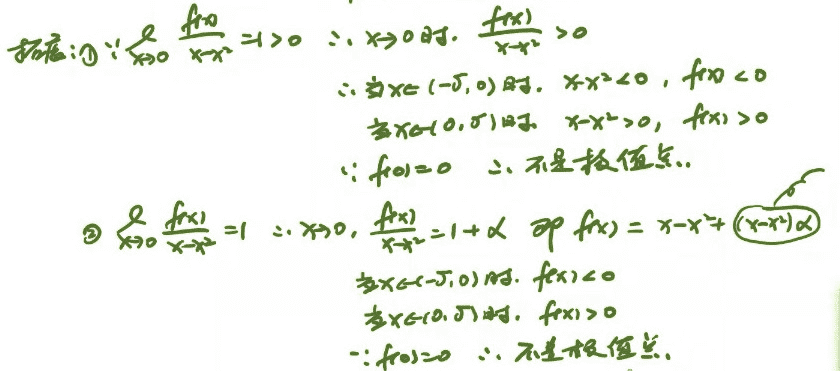 拓展:① ∵ lim_{x→0} f(x)/(x-x²) = 1 > 0 ∴ x→0时. f(x)/(x-x²) > 0
∴ 当x∈(-δ,0)时. x-x²<0, f(x)<0
当x∈(0,δ)时 x-x²>0, f(x)>0
∵ f(0)=0 ∴ 不是极值点..
② lim_{x→0} f(x)/(x-x²) = 1 ∴ x→0, f(x)/(x-x²) = 1+α 即 f(x) = x-x²+(x-x²)α
当x∈(-δ,0)时. f(x)<0
当x∈(0,δ)时. f(x)>0
∵ f(0)=0 ∴ 不是极值点.